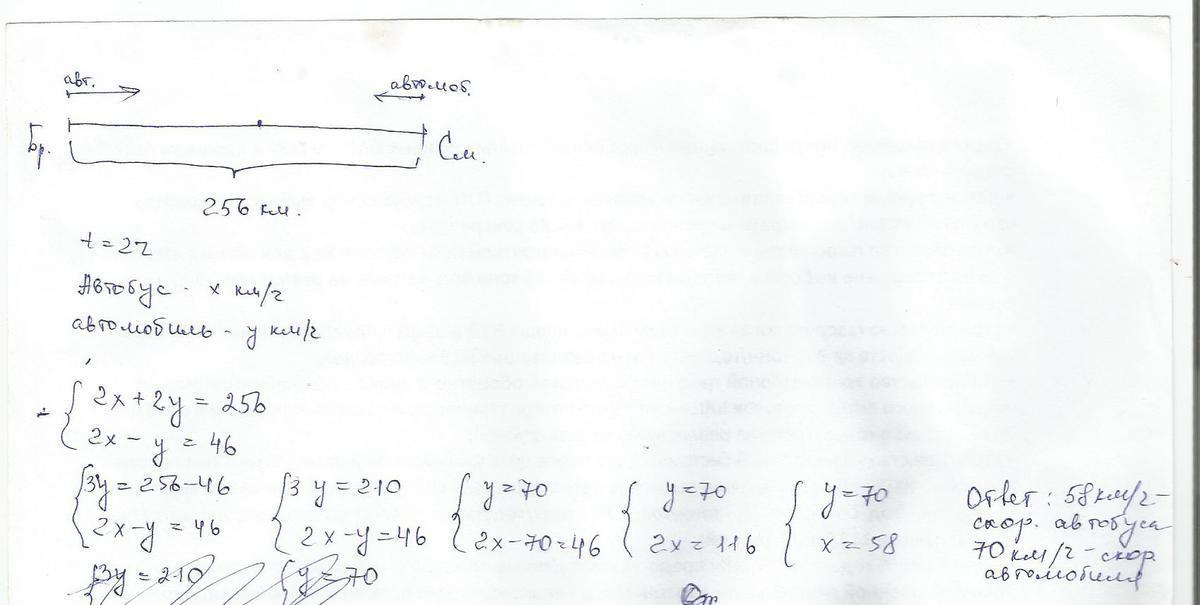 авт.
автомоб.
Бр.
См.
256 км.
t = 2ч
Автобус - x км/ч
автомобиль - y км/ч
- { 2x + 2y = 256
2x - y = 46
{ 3y = 256-46
2x-y = 46
{ 3y = 210
2x-y = 46
{ y = 70
2x-70 = 46
{ y = 70
2x = 116
{ y = 70
x = 58
Ответ: 58км/ч-
скор. автобуса
70км/ч-скор.
автомобиля
{ 3y = 210
{ y = 70
От